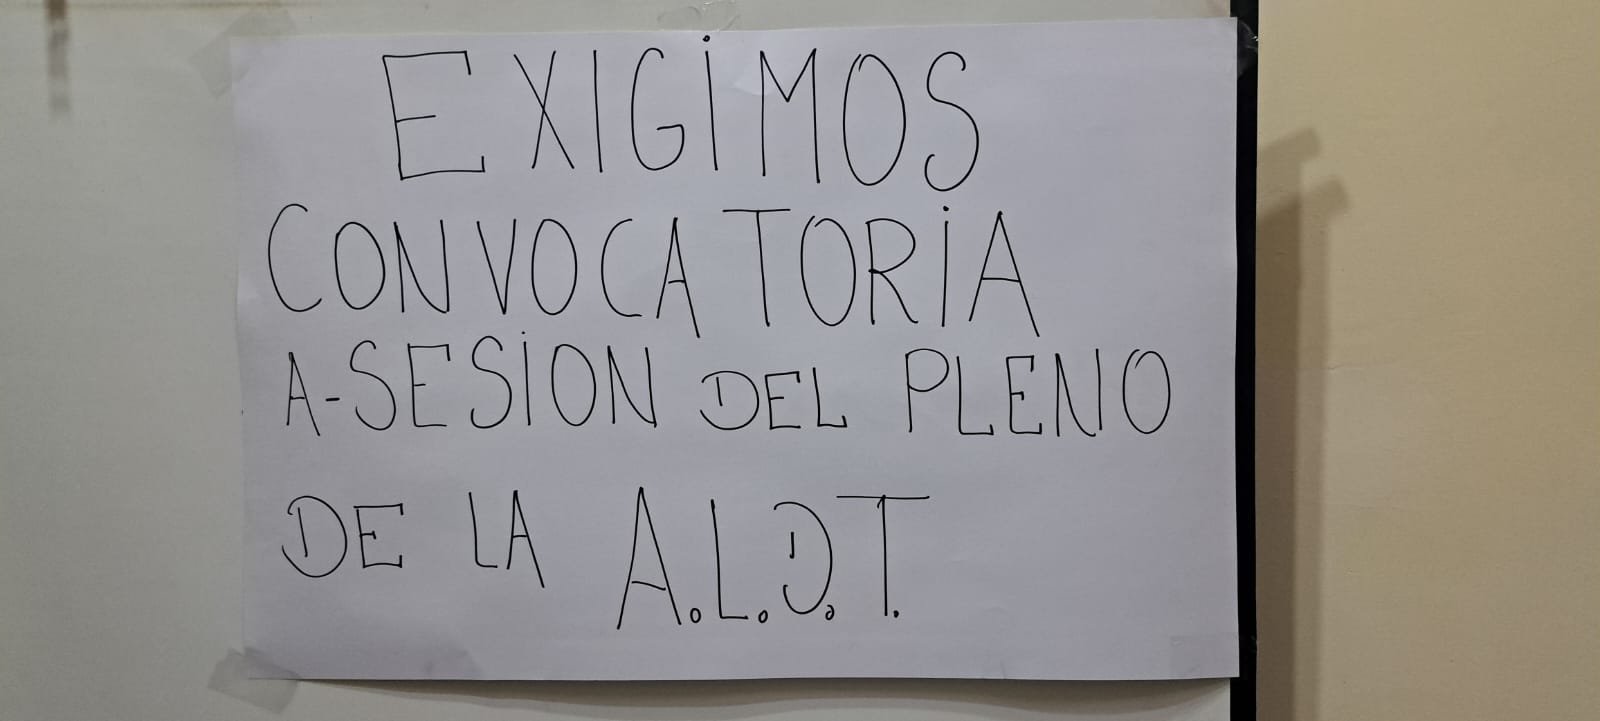 EXIGIMOS
CONVOCATORIA
A-SESION DEL PLENO
DE LA A.L.D.T.